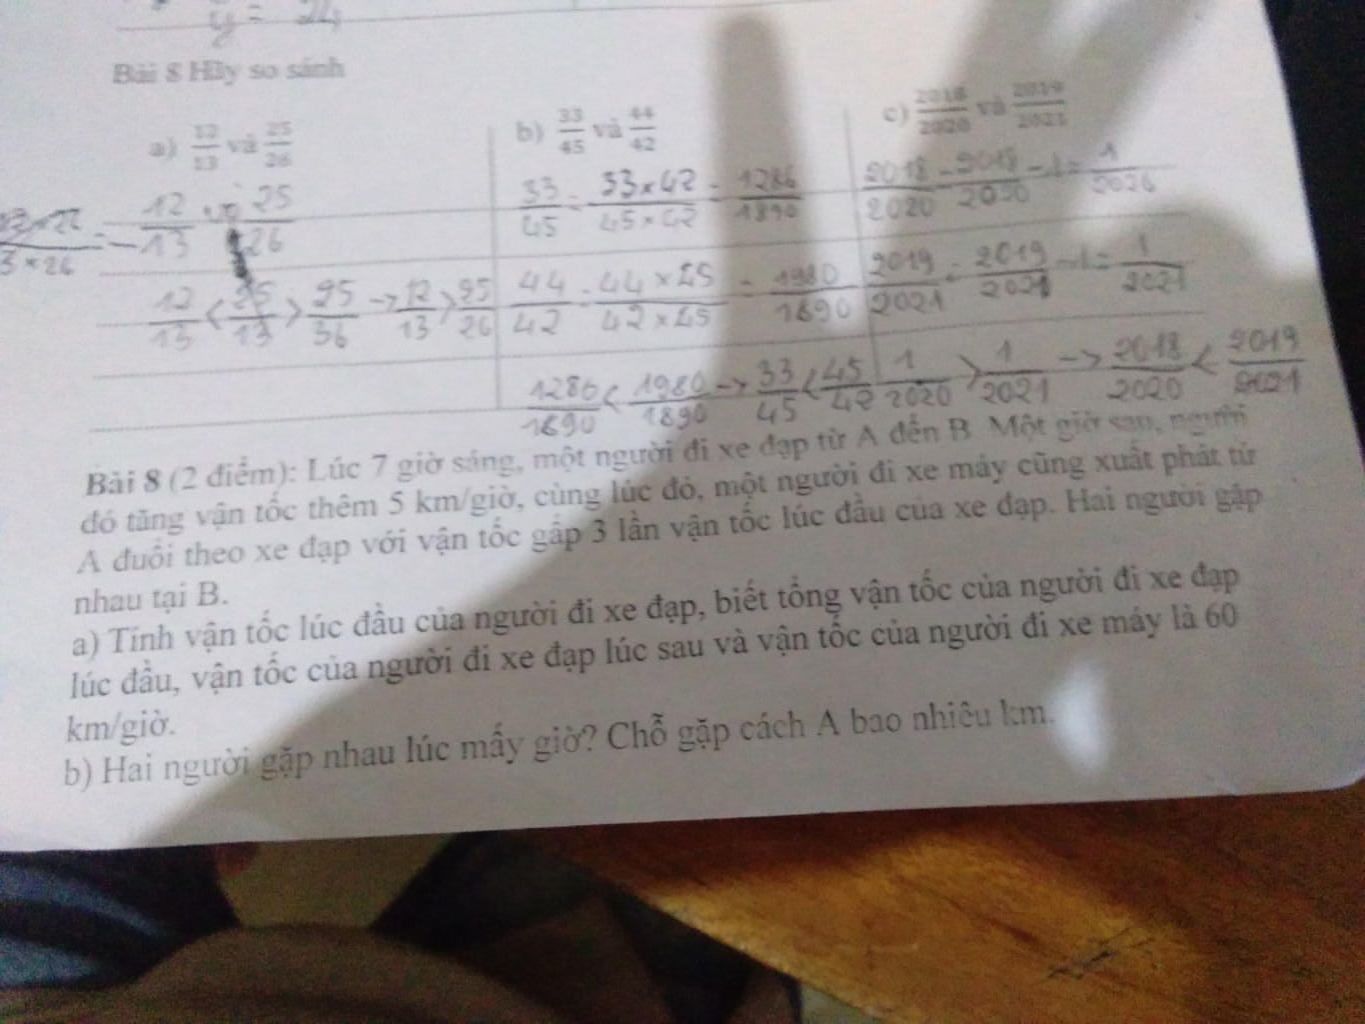 y = 24
Bài 8 Hãy so sánh
a) 12/13 và 25/26 b) 33/45 và 44/42 c) 2018/2020 và 2019/2021
12/13 và 25/26 33/45 = 33×42/45×42 = 1286/1890 2018/2020 = 2018/2020 - 1 = 1/2020
12/13 < 25/13 > 25/36 → 12/13 > 25/26 44/42 = 44×45/42×45 = 1980/1890 2019/2021 = 2019/2021 - 1 = 1/2021
1286/1890 < 1980/1890 → 33/45 < 45/42 1/2020 > 1/2021 → 2018/2020 < 2019/2021
Bài 8 (2 điểm): Lúc 7 giờ sáng, một người đi xe đạp từ A đến B. Một giờ sau, người
đó tăng vận tốc thêm 5 km/giờ, cùng lúc đó, một người đi xe máy cũng xuất phát từ
A đuổi theo xe đạp với vận tốc gấp 3 lần vận tốc lúc đầu của xe đạp. Hai người gặp
nhau tại B.
a) Tính vận tốc lúc đầu của người đi xe đạp, biết tổng vận tốc của người đi xe đạp
lúc đầu, vận tốc của người đi xe đạp lúc sau và vận tốc của người đi xe máy là 60
km/giờ.
b) Hai người gặp nhau lúc mấy giờ? Chỗ gặp cách A bao nhiêu km.